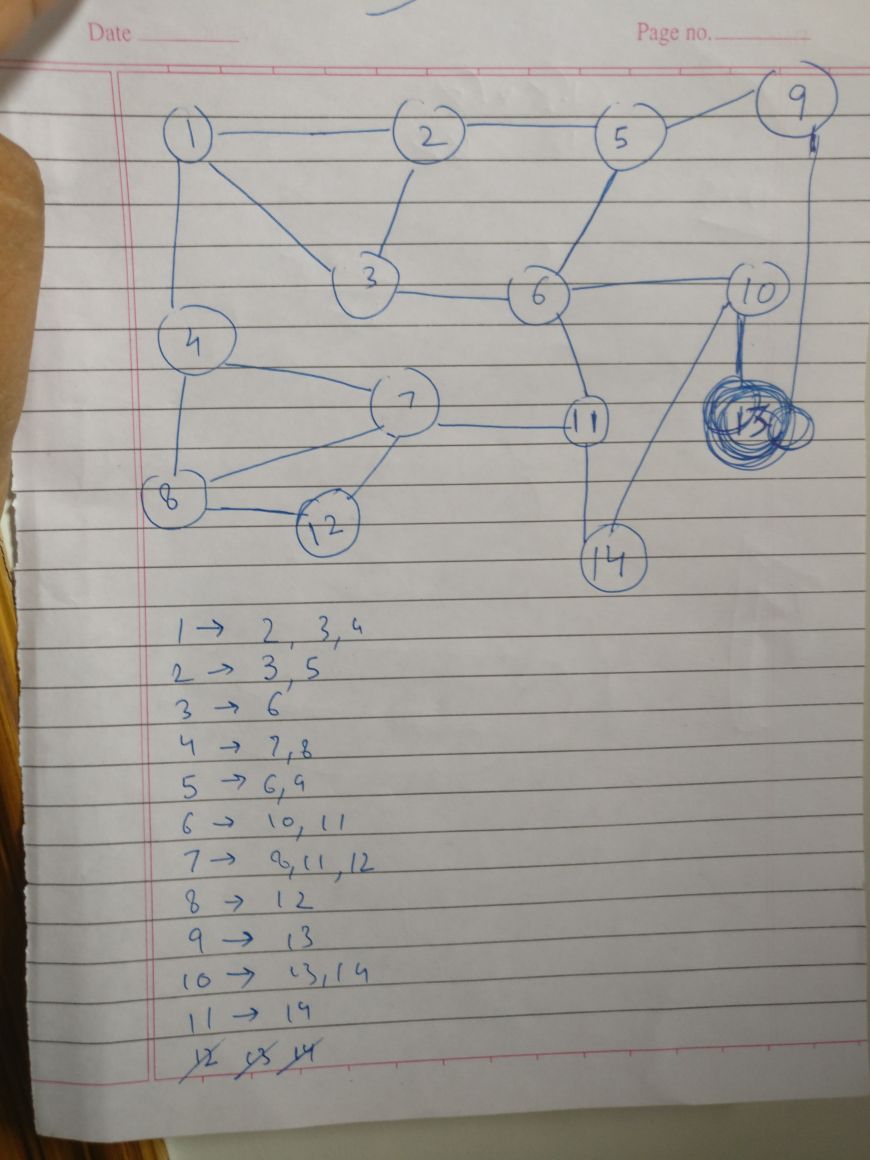 Date
Page no.
9
1 2 5
3 6 10
4
7 11 13
8 12
14
1 → 2, 3, 4
2 → 3, 5
3 → 6
4 → 7, 8
5 → 6, 9
6 → 10, 11
7 → 8, 11, 12
8 → 12
9 → 13
10 → 13, 14
11 → 14
12 13 14